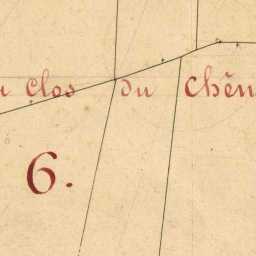 Clos du Chên
6.